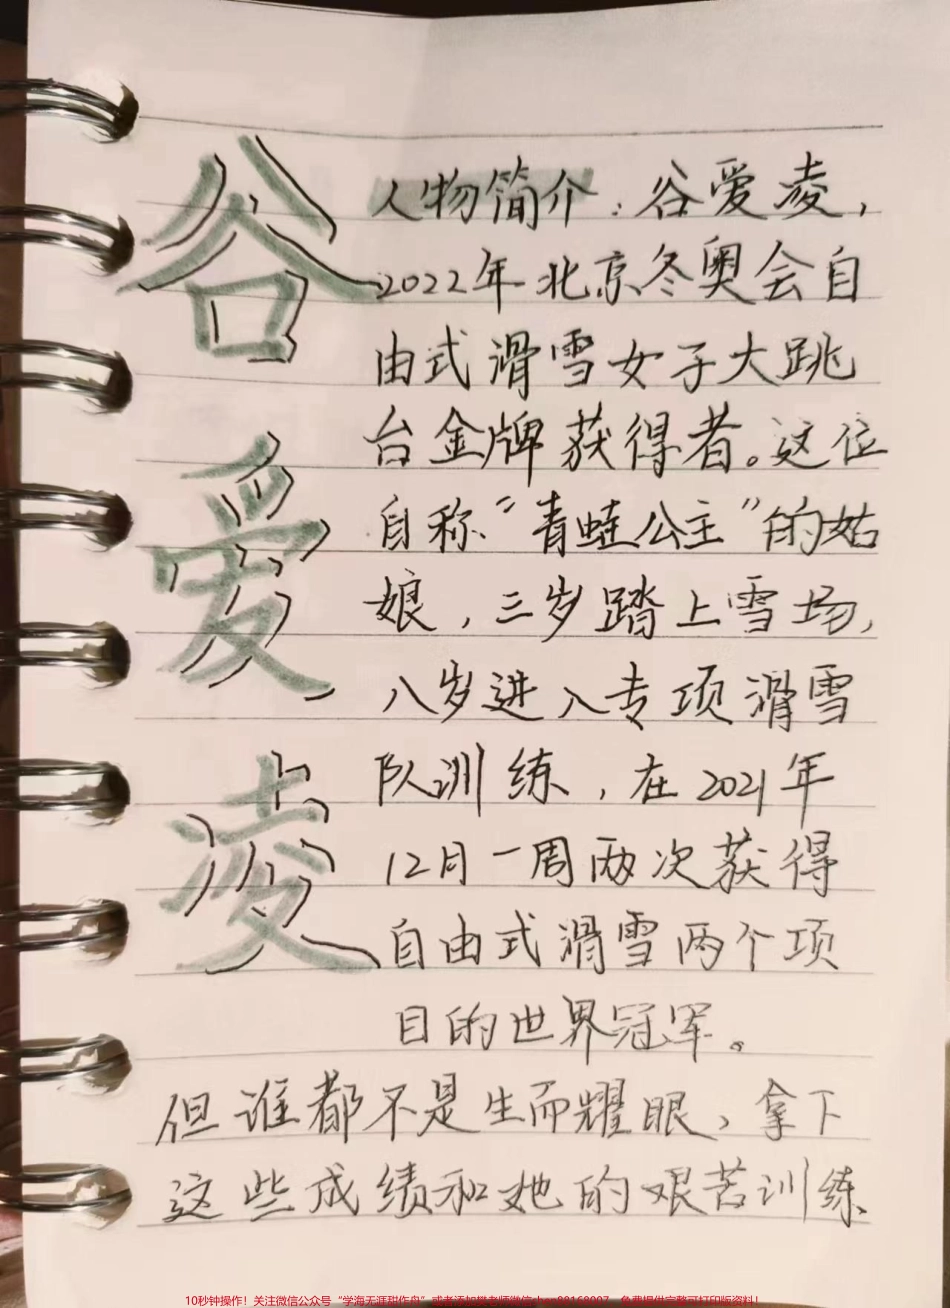 谷爱凌
人物简介：谷爱凌，
2022年北京冬奥会自
由式滑雪女子大跳
台金牌获得者。这位
自称“青蛙公主”的姑
娘，三岁踏上雪场，
八岁进入专项滑雪
队训练，在2021年
12月一周两次获得
自由式滑雪两个项
目的世界冠军。
但谁都不是生而耀眼，拿下
这些成绩和她的艰苦训练
10秒钟操作！关注微信公众号“学海无涯甜作舟”或者添加樊老师微信
免费提供完整可打印版资料！